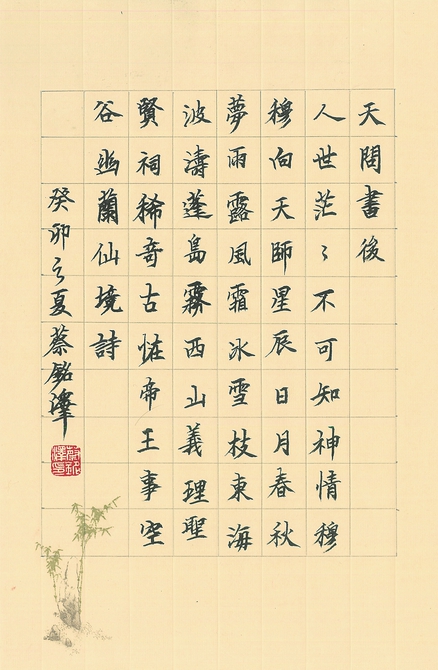 天問書後
人世茫〻不可知神情穆
穆向天師星辰日月春秋
夢雨露風霜冰雪枝東海
波濤蓬島霧西山義理聖
賢祠稀奇古怪帝王事空
谷幽蘭仙境詩
癸卯之夏蔡銘澤